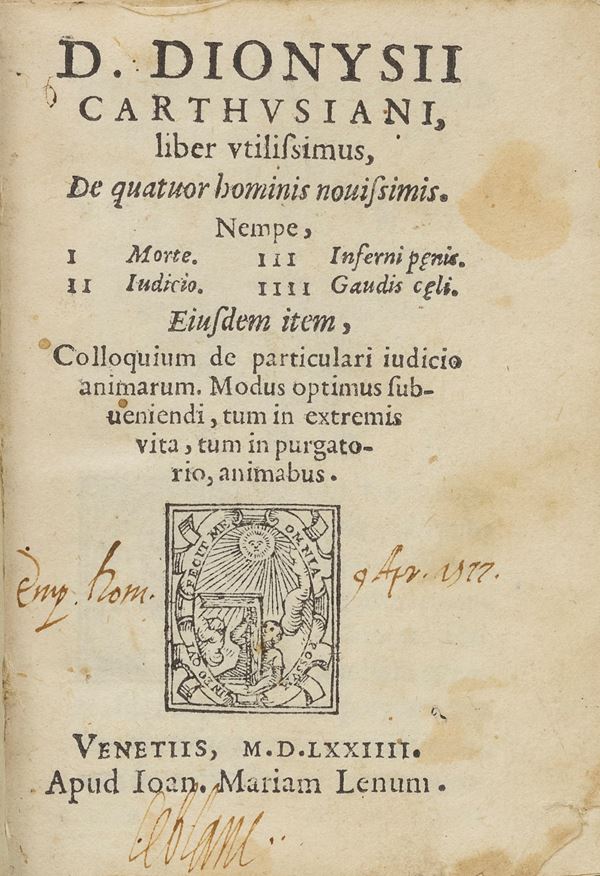 D. DIONYSII
CARTHVSIANI,
liber vtilissimus,
De quatuor hominis nouissimis.
Nempe,
I Morte. III Inferni pęnis.
II Iudicio. IIII Gaudis cęli.
Eiusdem item,
Colloquium de particulari iudicio
animarum. Modus optimus sub-
ueniendi, tum in extremis
vita, tum in purgato-
rio, animabus.
FECIT ME OMNIA
POSSUM IN EO QVI
Emp. Rom. 9 Apr. 1577.
VENETIIS, M.D.LXXIIII.
Apud Ioan. Mariam Lenum.
leblanc